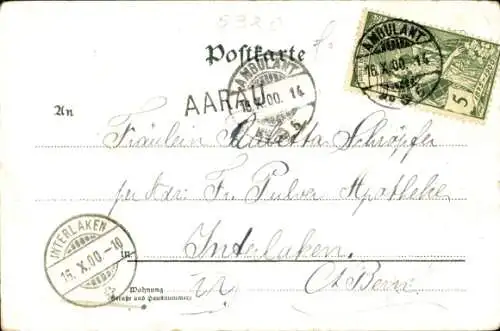 5320
Postkarte
AMBULANT
16.X.00. 14
AMBULANT
16.X.00. 14
5
AARAU
An
Fräulein Schöpfer
per Adr: Fr. Pulver Apotheke
Interlaken.
in
Ct Bern
INTERLAKEN
16.X.00.-10
Wohnung
(Straße und Hausnummer)